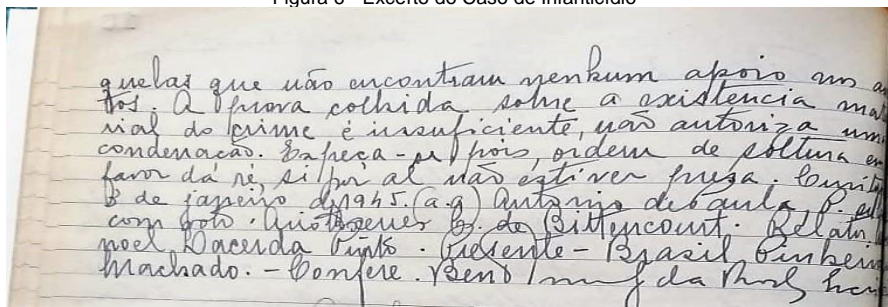 Figura 6 - Excerto do Caso de Infanticídio
quelas que não encontram nenhum apoio nos a
tos. A prova colhida sobre a existencia ma
rial do crime é insuficiente, não autoriza uma
condenação. Expeça-se, pois, ordem de soltura em
favor da ré, si por al não estiver presa. Curiti
3 de janeiro de 1945. (a.a) Antonio de Paula P.
com voto. Bittencourt. Relato.
noel Lacerda Pinto. Presente - Brasil Pinheiro
Machado. - Confere.